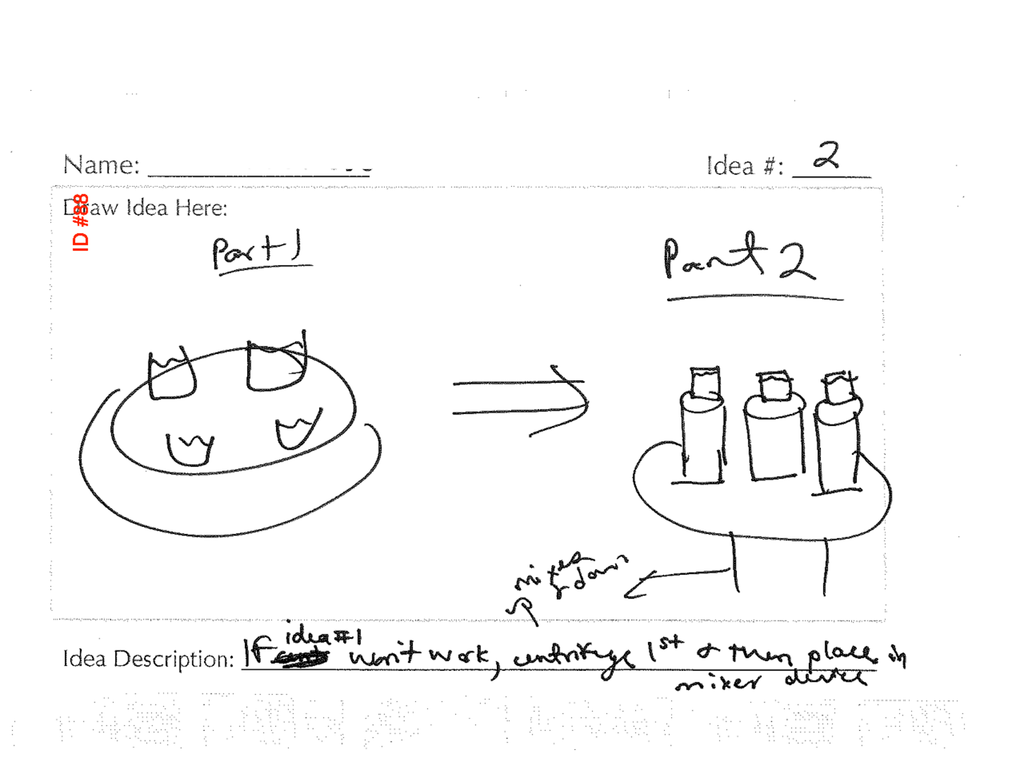 Name:
Idea #: 2
ID #88
Draw Idea Here:
Part 1
Part 2
mixes
down
Idea Description: If idea #1 won't work, centrifuge 1st & then place in
mixer device